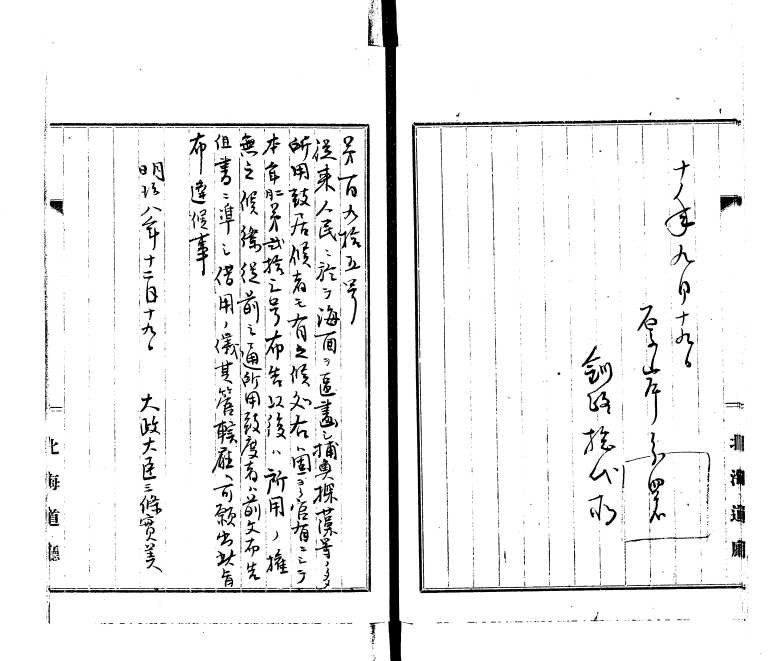 十八年九月十九日
厚岸分署
釧路総代所
北海道廳
第百九拾五号
従来人民ニ於テ海面ヲ區畫シ捕魚採藻等ノ為
所用致居候者モ有之候処右ハ固ヨリ官有ニシテ
本年二月第弐拾三号布告以後ハ所用ノ権
無之候條従前之通所用致度者ハ前文布告
但書ニ準シ借用ノ儀其管轄庁ヘ可願出此旨
布達候事
明治八年十二月十九日
太政大臣三條實美
北海道廳